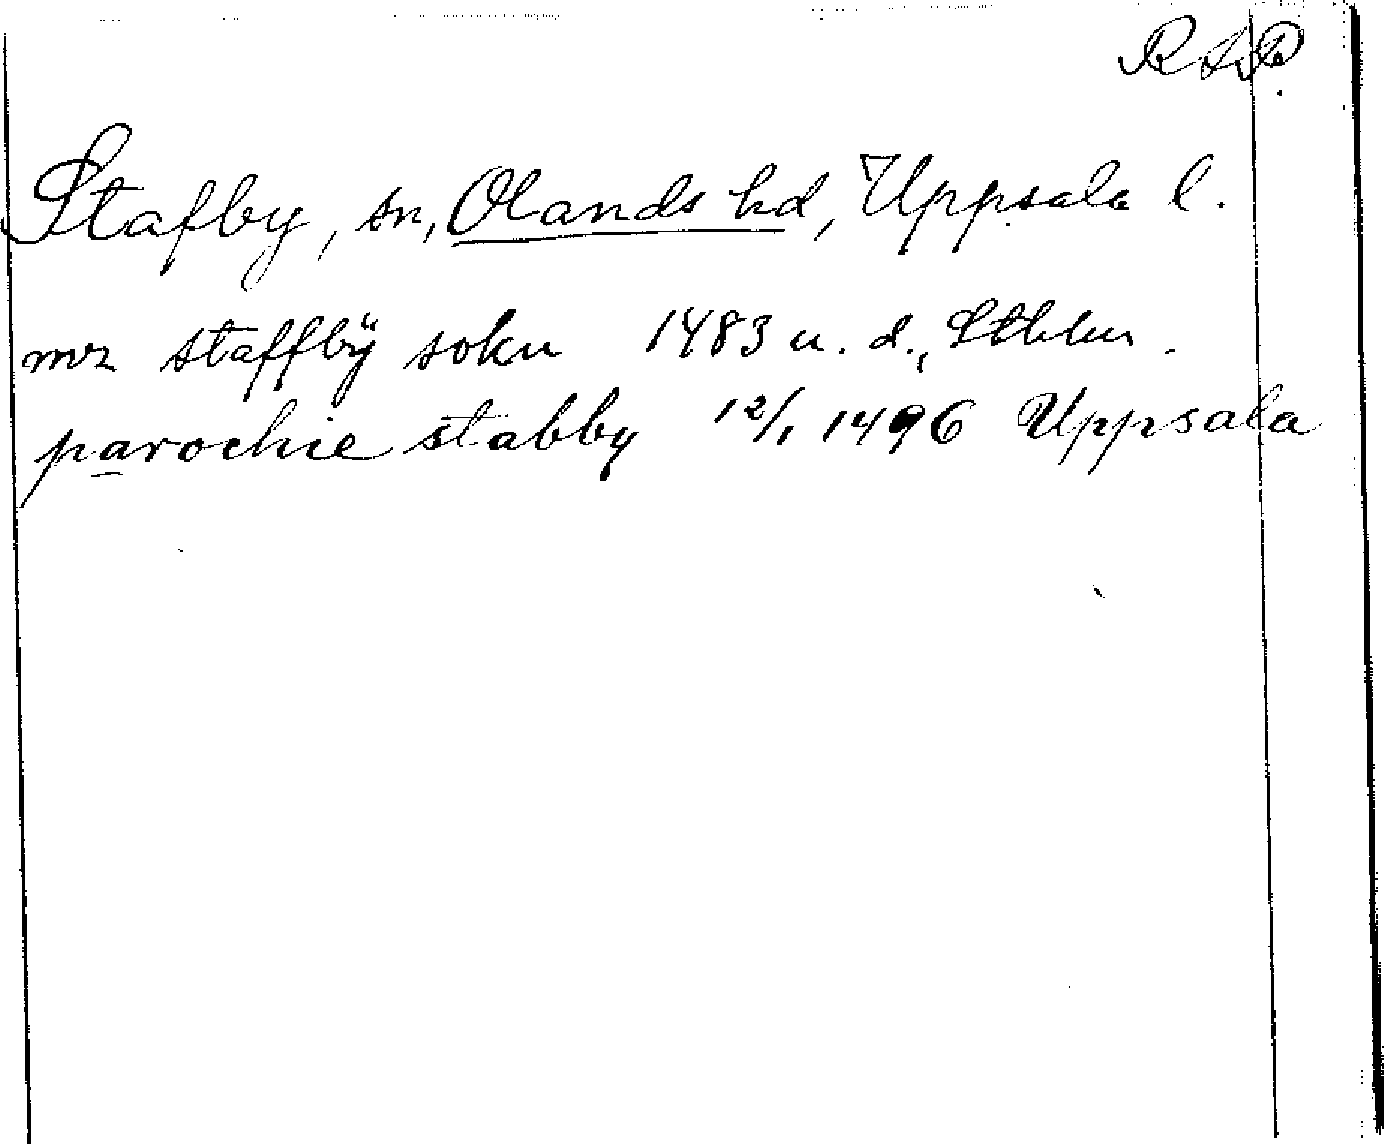 RAP.
Stafby, sn, Olands hd, Uppsala l.
mz staffbÿ sokn 1483 u. d., Sthlm.
parochie stabby 12/1 1496 Uppsala